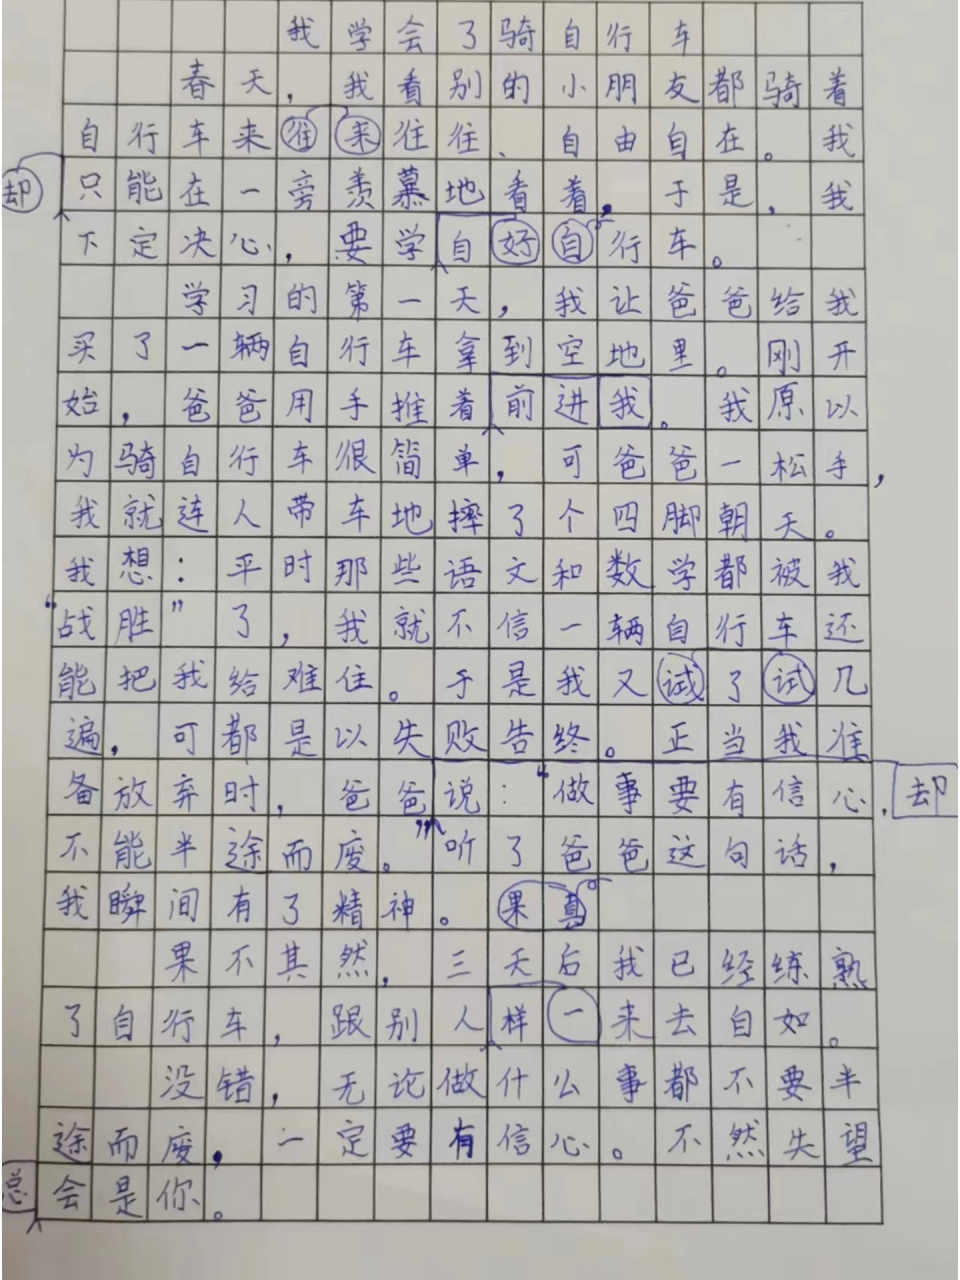 我学会了骑自行车
春天，我看别的小朋友都骑着
自行车来往来往往、自由自在。我
却
只能在一旁羡慕地看着，于是，我
下定决心，要学自好自行车。
学习的第一天，我让爸爸给我
买了一辆自行车拿到空地里。刚开
始，爸爸用手推着前进我。我原以
为骑自行车很简单，可爸爸一松手，
我就连人带车地摔了个四脚朝天。
我想：平时那些语文和数学都被我
“战胜”了，我就不信一辆自行车还
能把我给难住。于是我又试了试几
遍，可都是以失败告终。正当我准
备放弃时，爸爸说：“做事要有信心，却
不能半途而废。”听了爸爸这句话，
我瞬间有了精神。果真
果不其然，三天后我已经练熟
了自行车，跟别人样一来去自如。
没错，无论做什么事都不要半
途而废，一定要有信心。不然失望
总会是你。